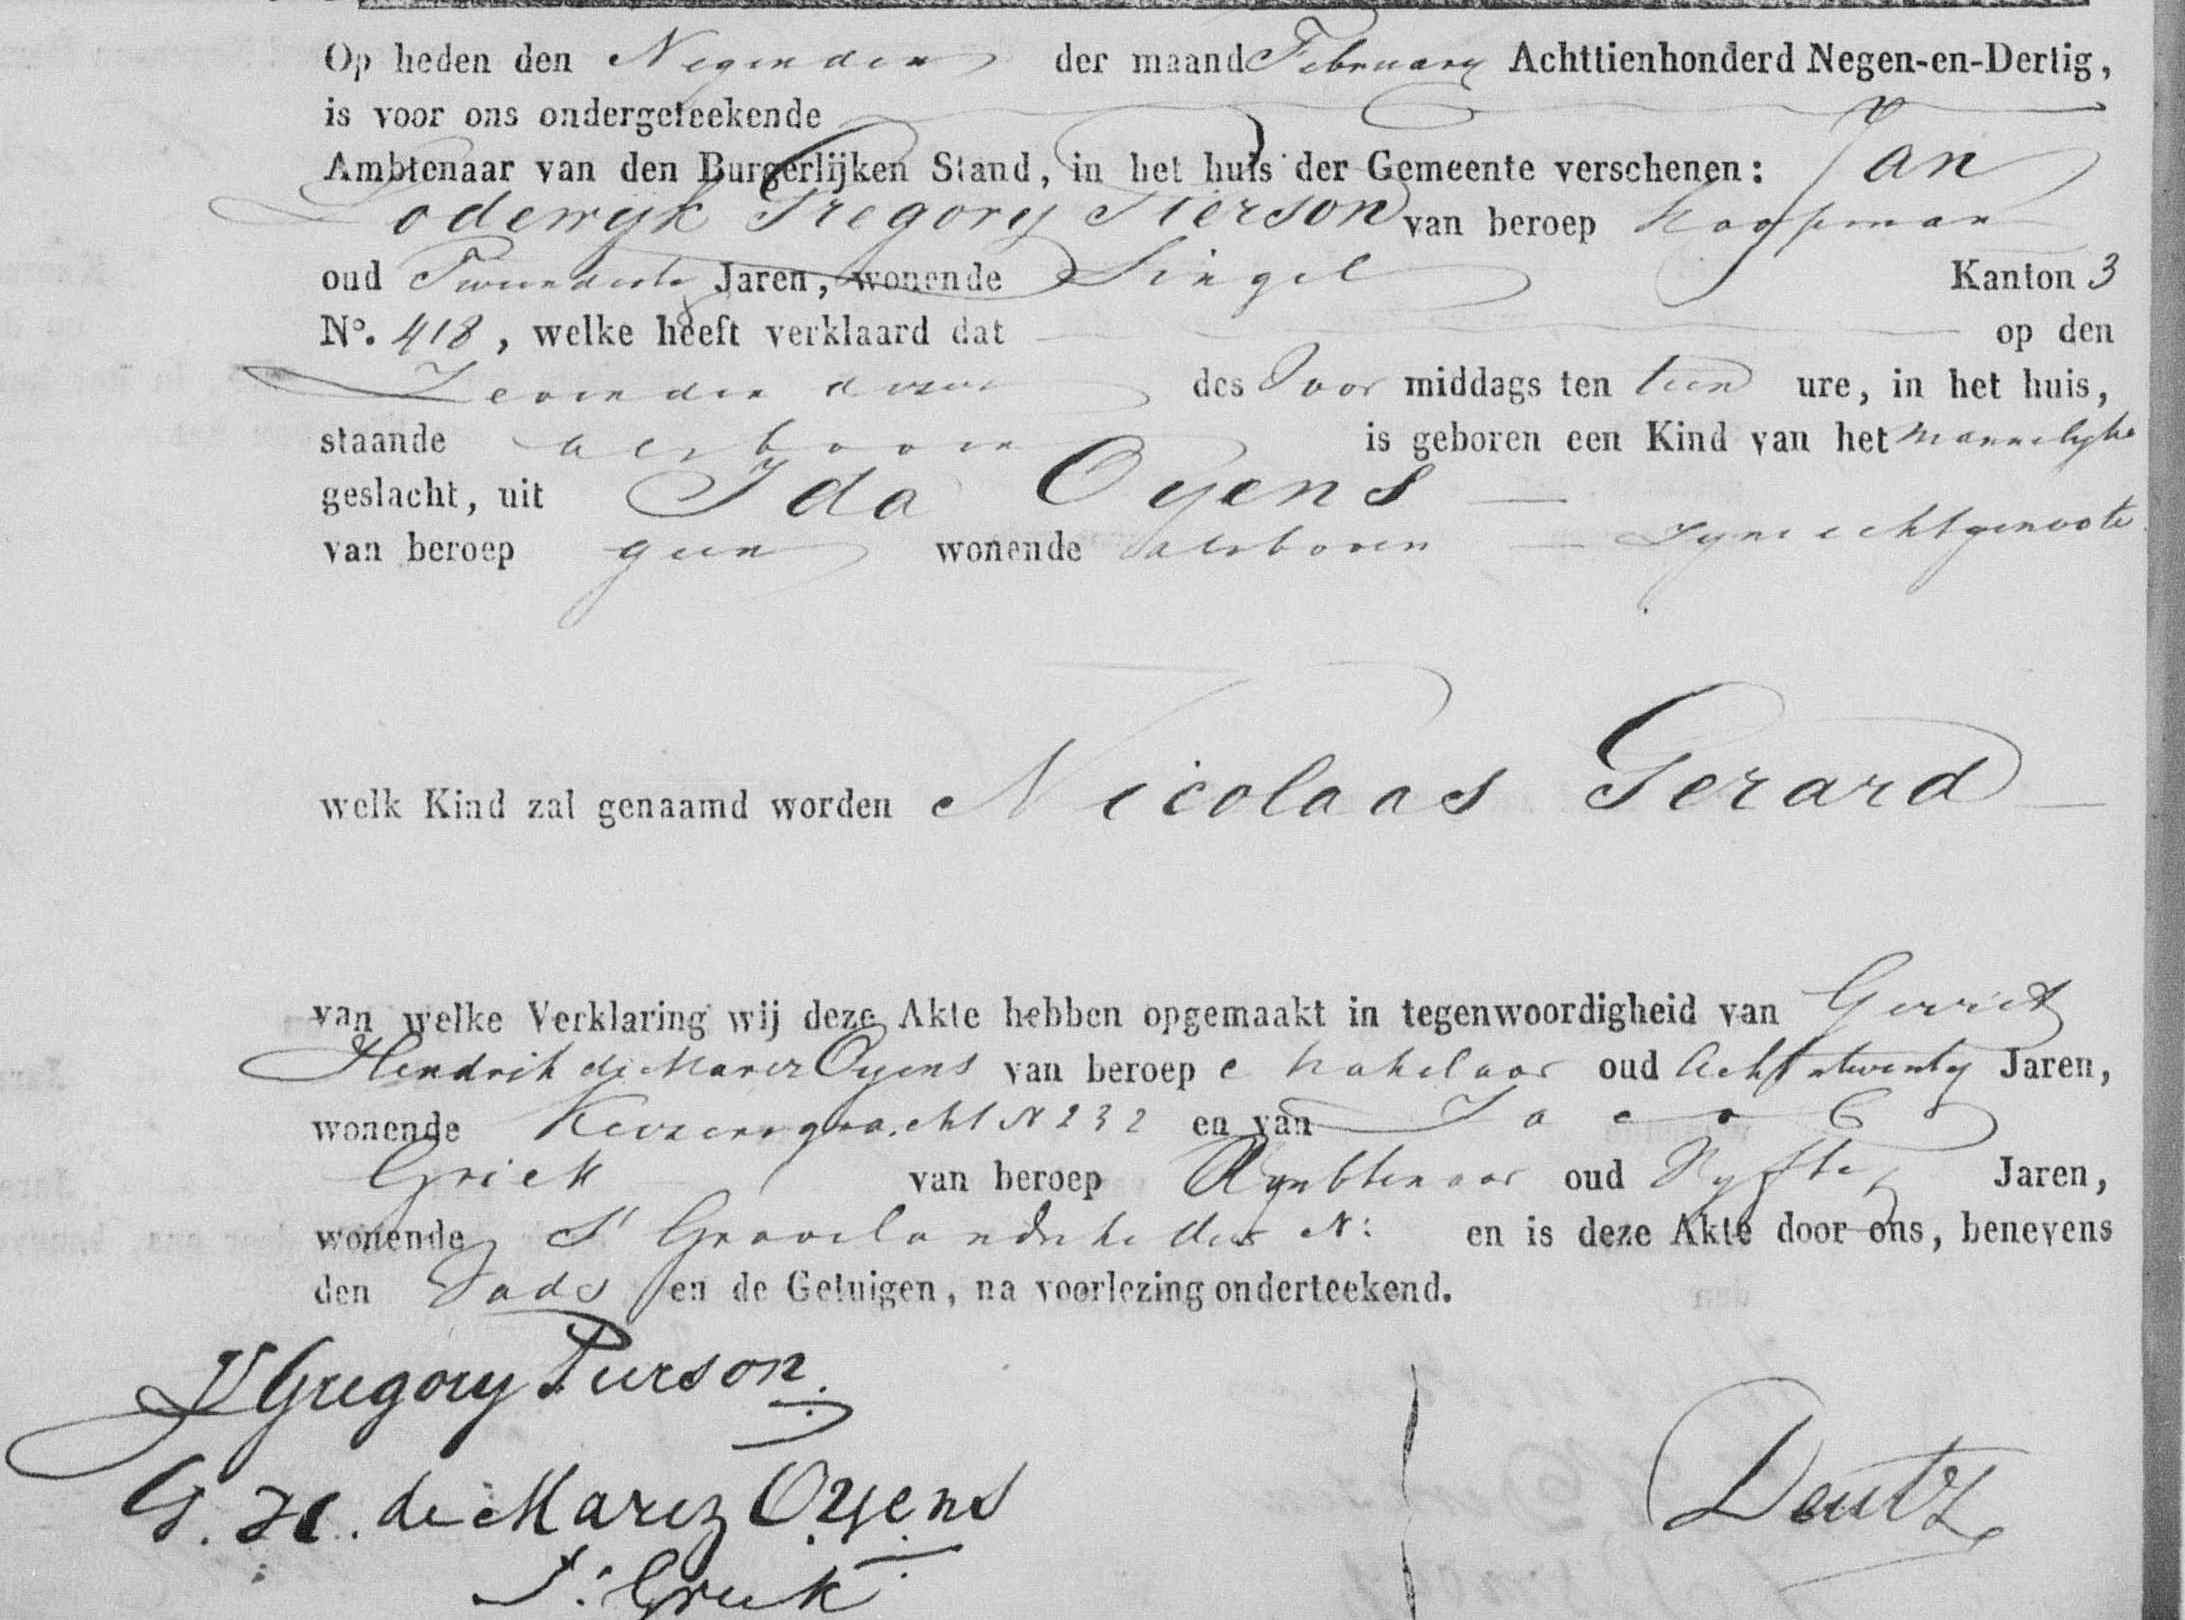 Op heden den Negenden der maand February Achttienhonderd Negen-en-Dertig,
is voor ons ondergeteekende
Ambtenaar van den Burgerlijken Stand, in het huis der Gemeente verschenen: Jan
Lodewyk Gregory Pierson van beroep Koopman
oud Jaren, wonende Singel Kanton 3
No. 418, welke heeft verklaard dat op den
Zevenden dezer des Voor middags ten tien ure, in het huis,
staande alsboven is geboren een Kind van het mannelyke
geslacht, uit Ida Oyens
van beroep geen wonende alsboven zyne echtgenoote
welk Kind zal genaamd worden Nicolaas Gerard
van welke Verklaring wij deze Akte hebben opgemaakt in tegenwoordigheid van Gerrit
Hendrik de Marez Oyens van beroep Makelaar oud Achtentwintig Jaren,
wonende Keizersgracht N 232 en van Jacob
Griek van beroep Ambtenaar oud Vyftig Jaren,
wonende N: en is deze Akte door ons, benevens
den Vader en de Getuigen, na voorlezing onderteekend.
JL Gregory Pierson.
G. H. de Marez Oyens
J. Griek
Deutz